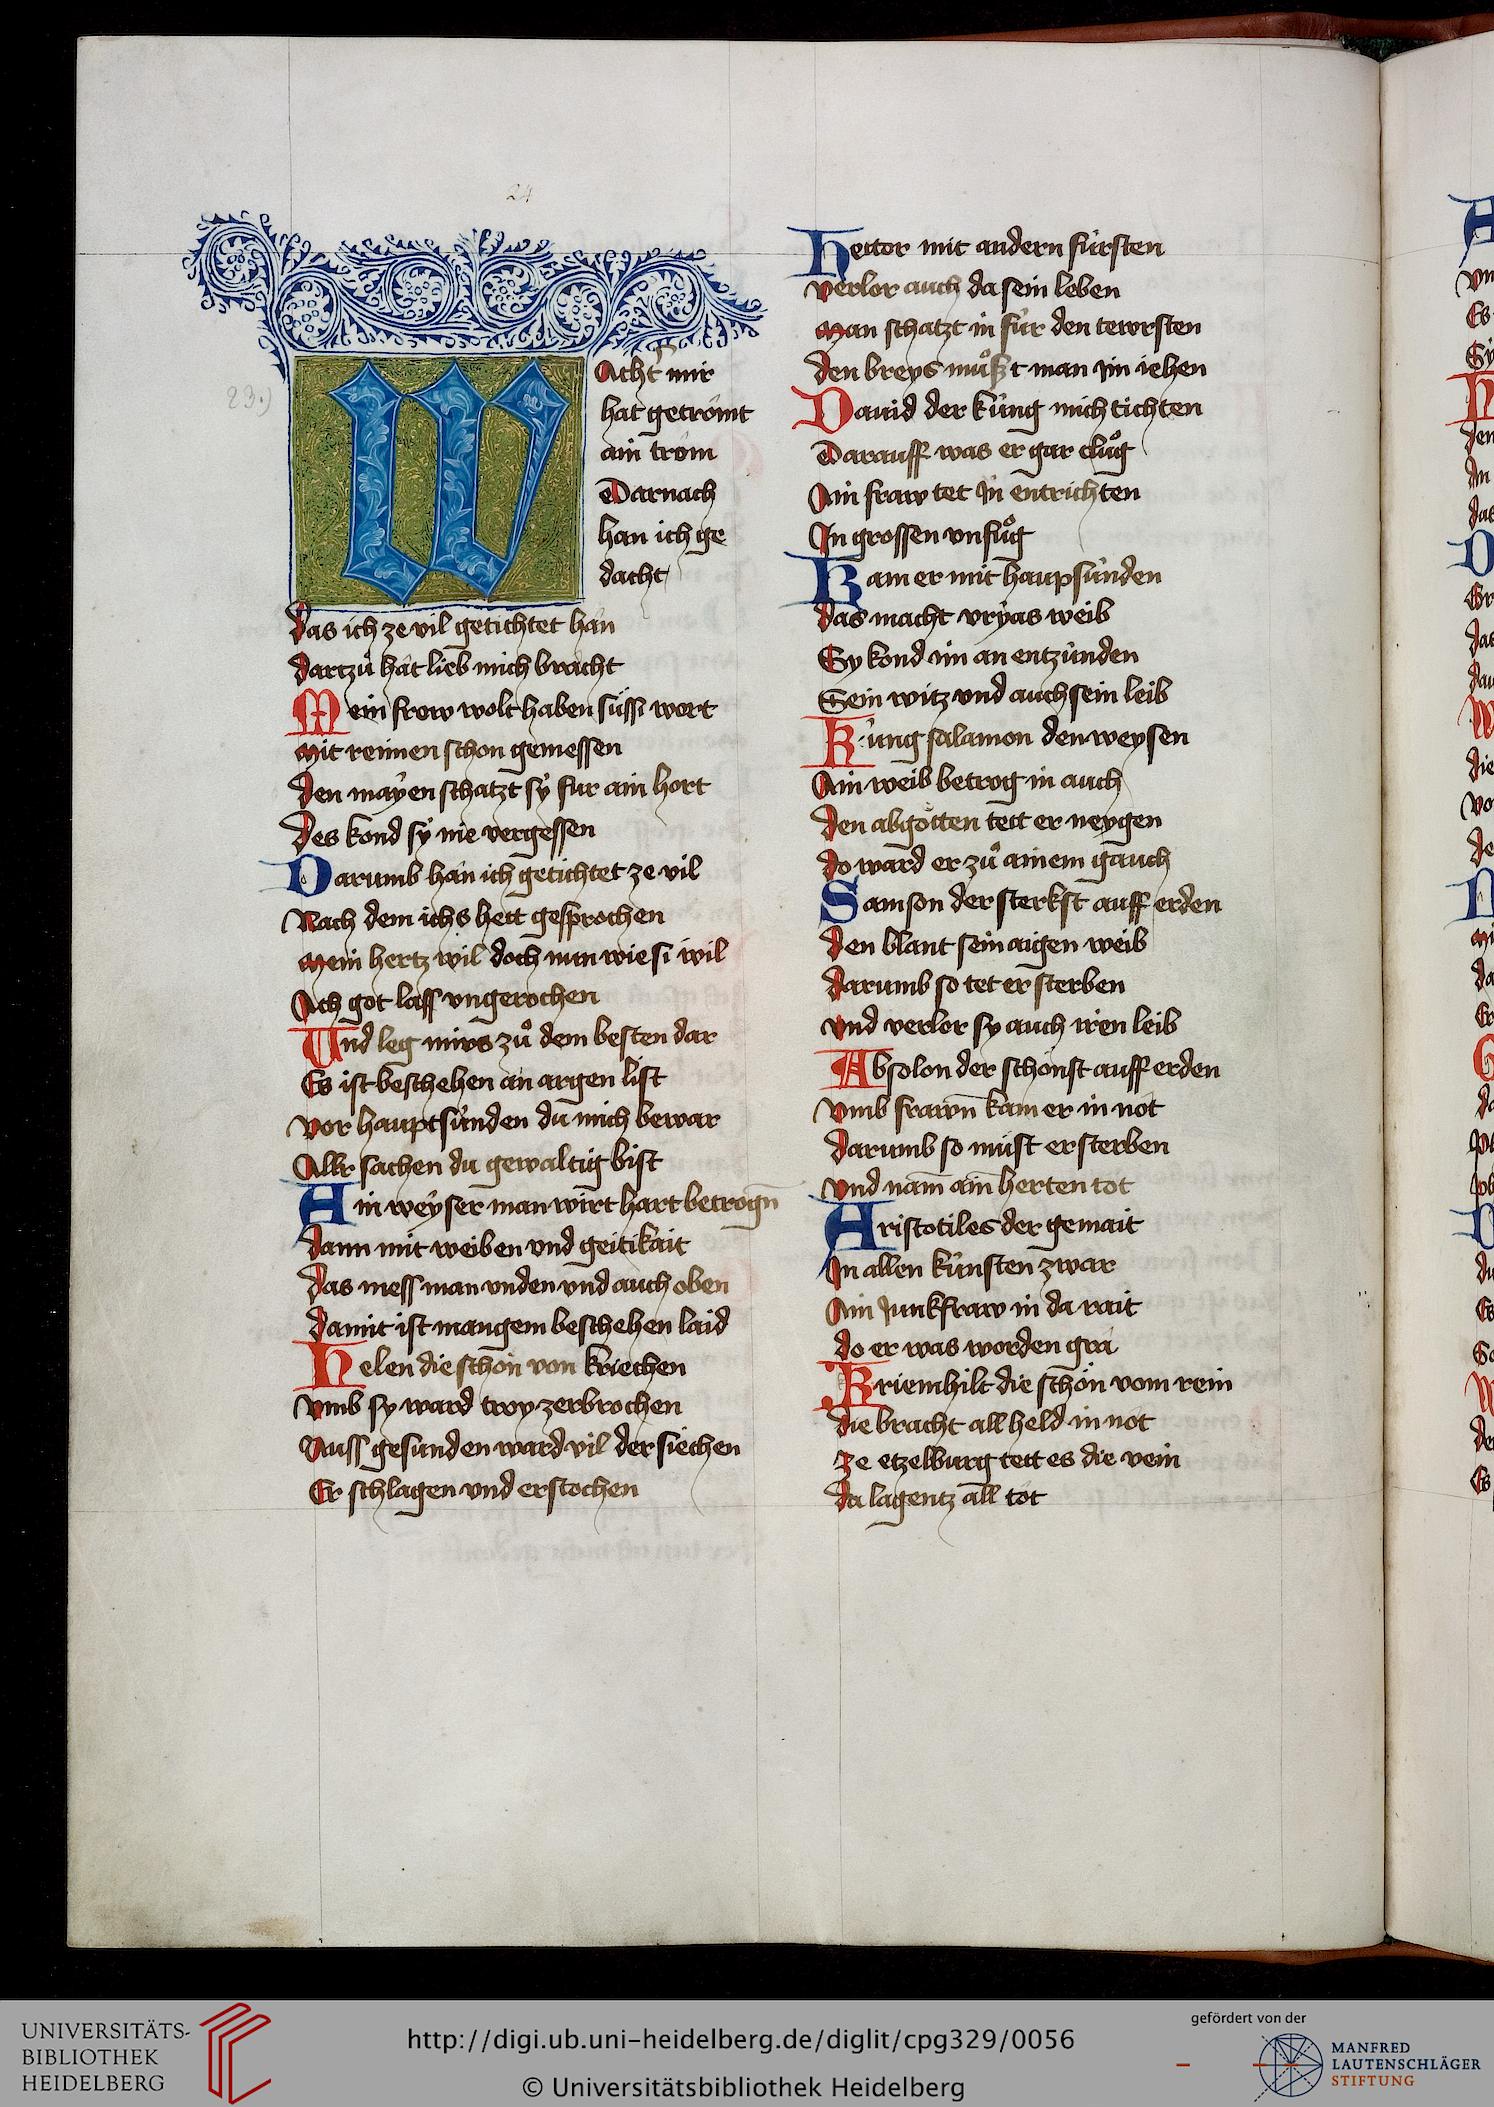 24
23.)
WAcht mir
hat getrömt
ain trom
Darnach
han ich ge
dacht
Das ich ze vil getichtet hân
Dartzů hât lieb mich bracht
Mein frow wolt haben süssi wort
Mit reimen schon gemessen
Den maÿen schatzt sÿ fur ain hort
Des kond sÿ nie vergessen
Darumb hân ich getichtet ze vil
Nach dem ichs hett gesprochen
Mein hertz wil doch nun wie si wil
Ach got lass vngerochen
Vnd leg mirs zů dem besten dar
Es ist beschehen ân argen list
Vor hauptsünden du mich bewar
Aller sachen du gewaltig bist
Ain weÿser man wirt hart betrogn̄
Dann mit weiben vnd geitikait
Das mess man vnden vnd auch oben
Damit ist mangem beschehen laid
Helen die schön von kriechen
Vmb sy ward troy zerbrochen
Auss gesunden ward vil der siechen
Er schlagen vnd erstochen
Hettor mit andern fürsten
Verlor auch da sein leben
Man schatzt in für den tewrsten
Den breys můsst man im iehen
Dauid der küng mich tichten
Darauff was er gar clůg
Ain fraw tet in entrichten
In grossen vnfůg
Kam er mit haupsünden
Das macht vrÿas weib
Sy kond im an entzünden
Sein witz vnd auch sein leib
Küng salamon den weysen
Ain weib betrog in auch
Den abgötten tett er neygen
Do ward er zů ainem gauch
Samson der sterkst auff erden
Den blant sein aigen weib
Darumb so tet er sterben
Vnd verlor sy auch iren leib
Absolon der schönst auff erden
Vmb frawn̄ kam er in nôt
Darumb so müst er sterben
Vnd nam̄ ain̄ herten tot
Aristotiles der gemait
In allen künsten zwar
Ain junkfraw in da rait
Do er was worden gra
Kriemhilt die schön vom rein
Die bracht all held in nôt
Ze etzelburg tett es die vein
Da lagentz all tôt
UNIVERSITÄTS-
BIBLIOTHEK
HEIDELBERG
http://digi.ub.uni-heidelberg.de/diglit/cpg329/0056
© Universitätsbibliothek Heidelberg
gefördert von der
MANFRED
LAUTENSCHLÄGER
STIFTUNG